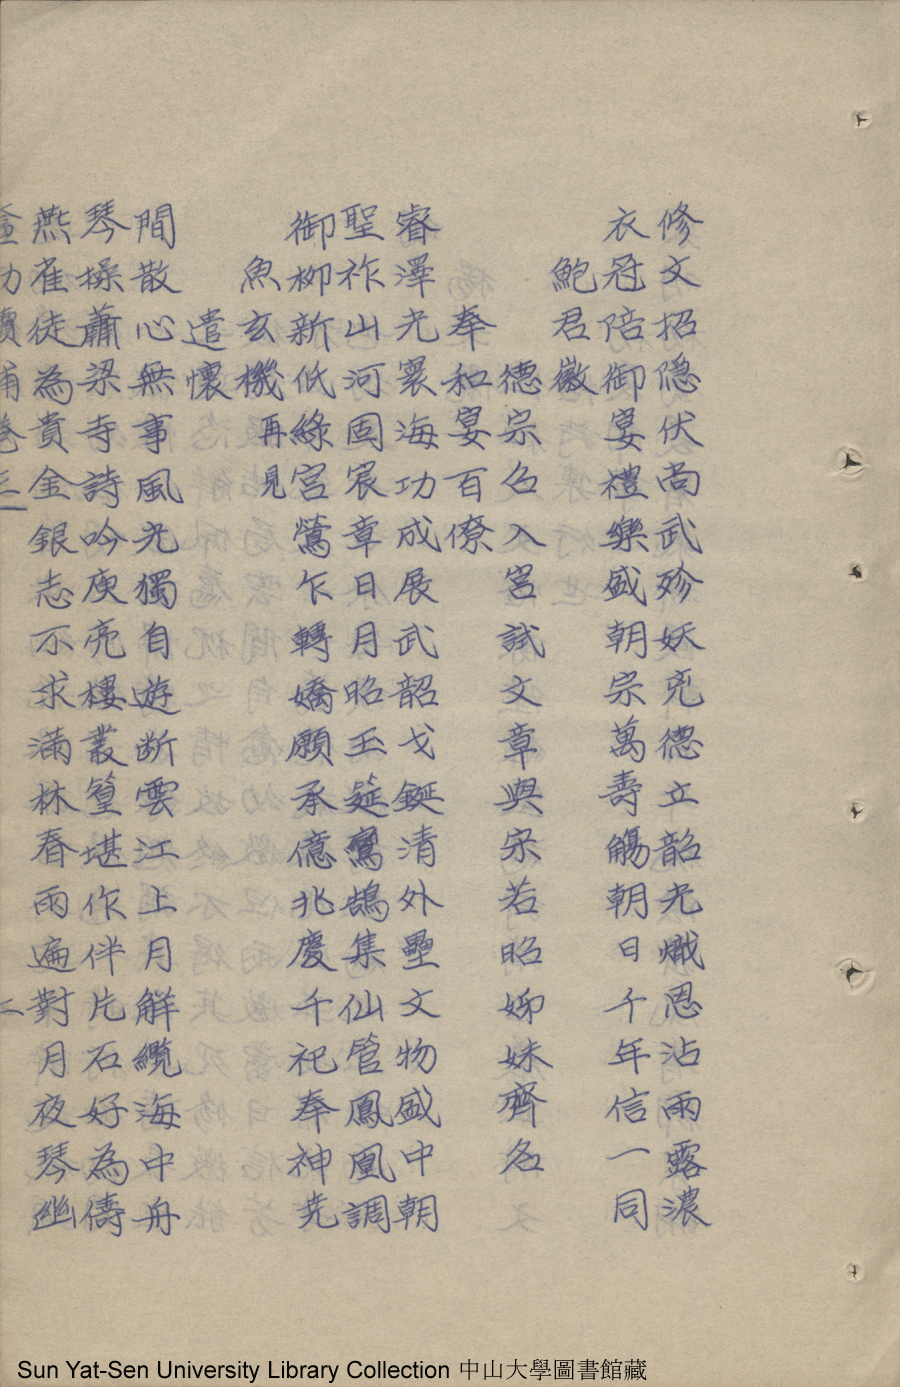 修文招隱伏尚武殄妖兇德立韶光熾恩沾雨露濃
衣冠陪御宴禮樂盛朝宗萬壽觴朝日千年信一同
鮑君徽
德宗召入宮試文章與宋若昭姊妹齊名
奉和宴百僚
睿澤光寰海功成展武韶戈鋋清外壘文物盛中朝
聖祚山河固宸章日月昭玉筵鸞鵠集仙管鳳凰調
御柳新低綠宮鶯乍轉嬌願承億兆慶千祀奉神堯
魚玄機 再見
遣懷
間散心無事風光獨自遊斷雲江上月解纜海中舟
琴操蕭梁寺詩吟庾亮樓叢篁堪作伴片石好為儔
燕雀徒為貴金銀志不求滿林春雨遍對月夜琴幽
卷三 二
Sun Yat-Sen University Library Collection 中山大學圖書館藏